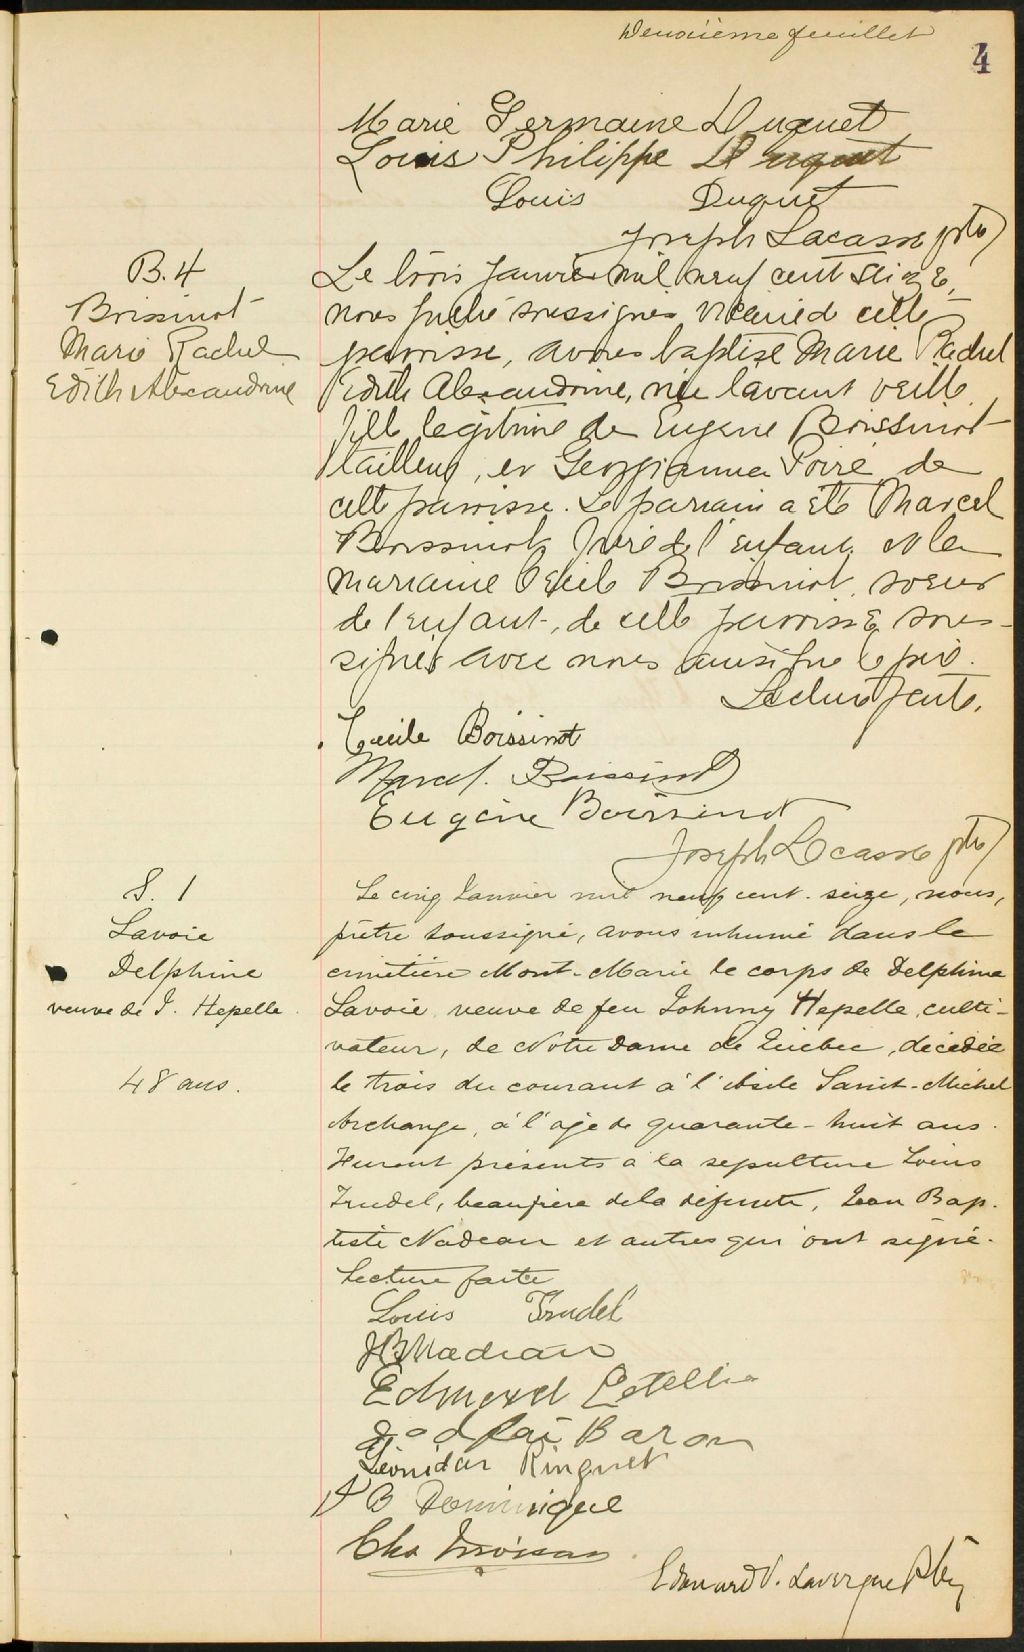 Deuxième feuillet
4
Marie Germaine Duquet
Louis Philippe Duquet
Louis Duquet
Joseph Lacasse ptre
B. 4
Boissinot
Marie Rachel
Edith Alexandrine
Le trois Janvier mil neuf cent seize,
nous prêtre soussigné, vicaire de cette
paroisse, avons baptisé Marie Rachel
Edith Alexandrine, née l'avant veille
fille légitime de Eugène Boissinot
tailleur, et Georgianna Poiré de
cette paroisse. Le parrain a été Marcel
Boissinot, frère de l'enfant et la
marraine Cécile Boissinot, soeur
de l'enfant, de cette paroisse, sous-
signés avec nous ainsi que le père.
Lecture faite.
Cecile Boissinot
Marcel Boissinot
Eugène Boissinot
Joseph Lacasse ptre
S. 1
Lavoie
Delphine
veuve de J. Hepelle.
48 ans.
Le cinq Janvier mil neuf cent seize, nous,
prêtre soussigné, avons inhumé dans le
cimetière Mont-Marie le corps de Delphine
Lavoie, veuve de feu Johnny Hepelle, culti-
vateur, de Notre Dame de Québec, décédée
le trois du courant à l'Asile Saint-Michel
Archange, à l'âge de quarante-huit ans.
Furent présents à la sépulture Louis
Trudel, beaupère de la défunte, Jean Bap-
tiste Nadeau et autres qui ont signé.
Lecture faite
Louis Trudel
JB Nadeau
Edmond Letellier
Baron
Léonidas Ringuet
B Dominique
Chs
Edouard V. Lavergne Ptre